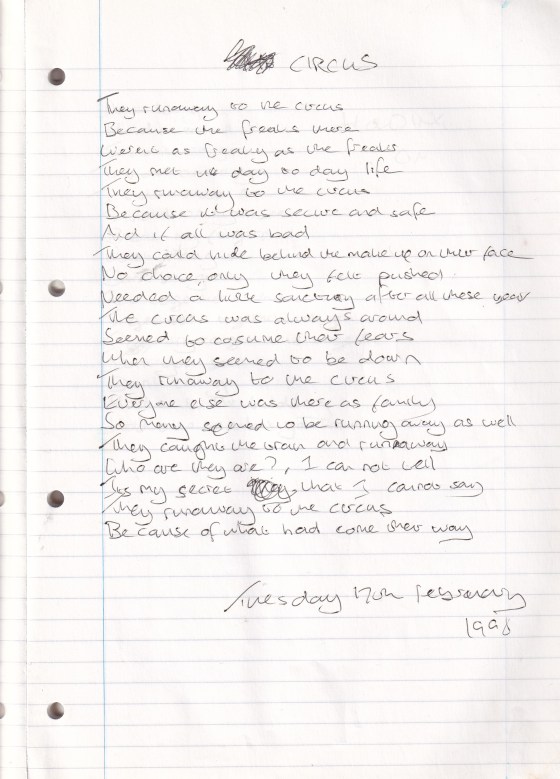 CIRCUS
They runaway to the circus
Because the freaks there
Werent as freaky as the freaks
They met in day to day life
They runaway to the circus
Because it was secure and safe
And if all was bad
They could hide behind the make up on their face
No choice, only they felt pushed.
Needed a little sanctury after all these years
The circus was always around
Seemed to costume their fears
When they seemed to be down
They runaway to the circus
Everyone else was there as family
So many seemed to be running away as well
They caught the train and runaway
Who are they are?, I can not tell
Its my secret that I cannot say
They runaway to the circus
Because of what had come their way
Tuesday 17th February
1998